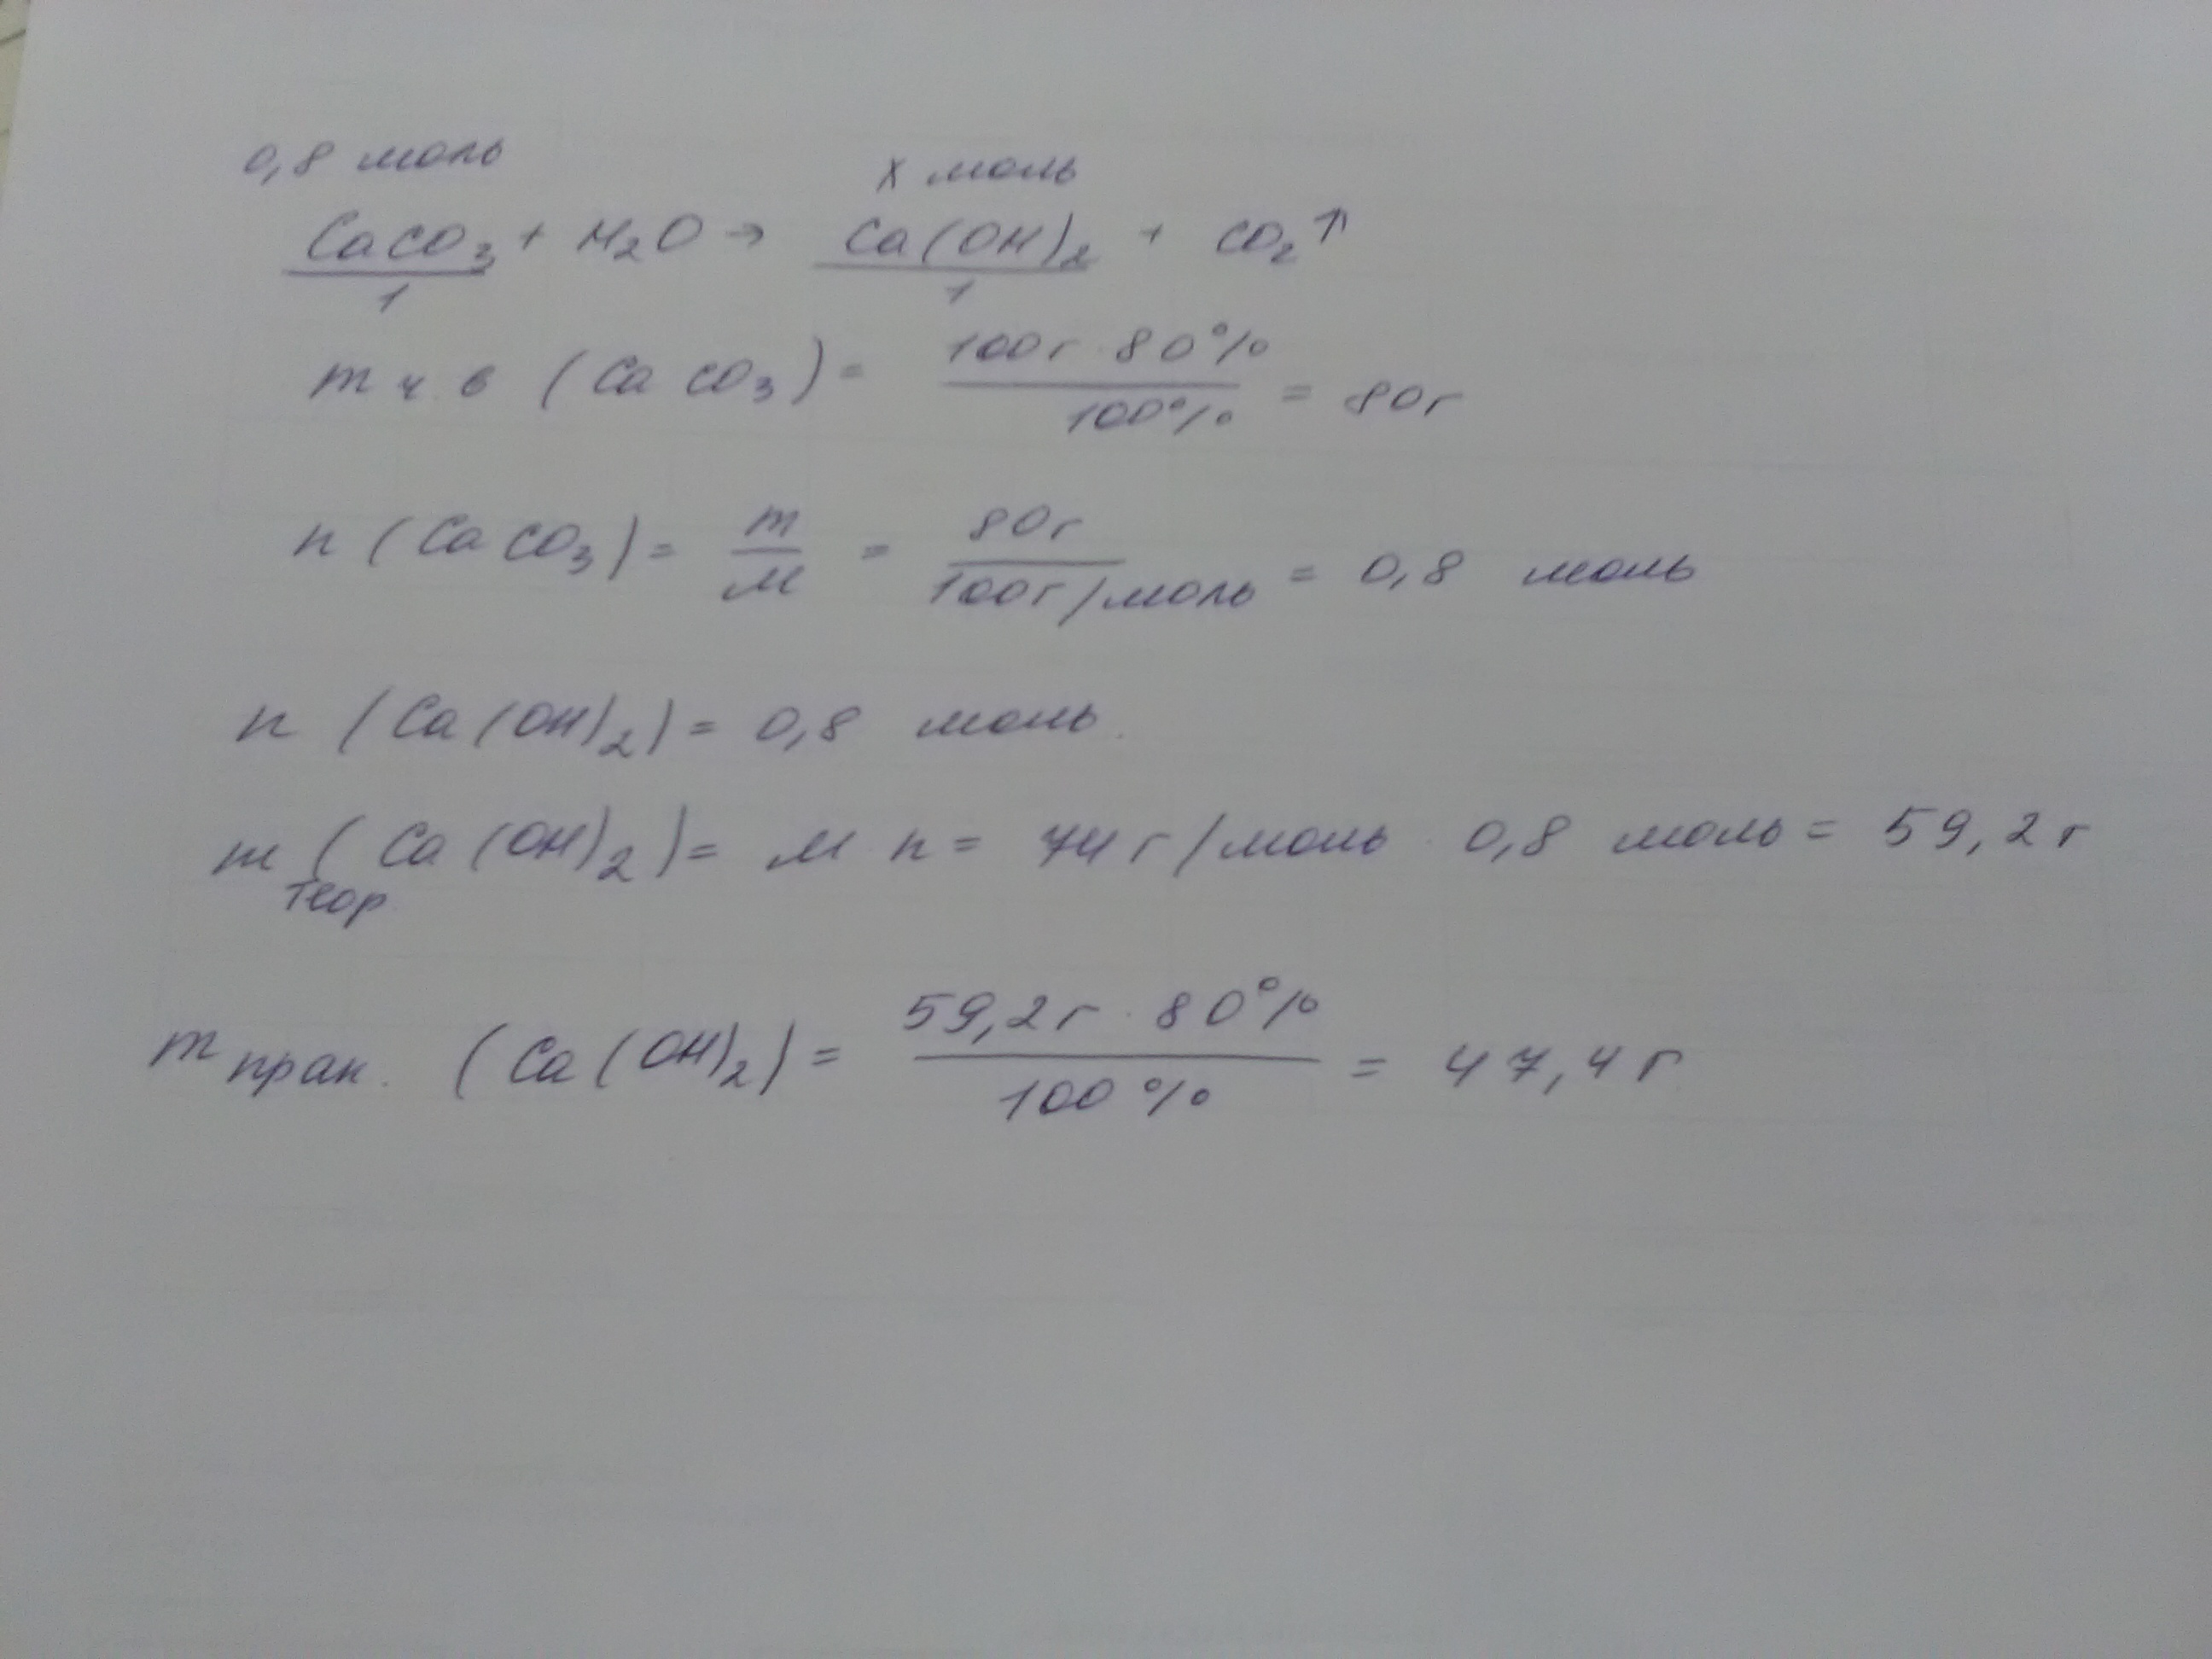 0,8 моль x моль
CaCO₃ + H₂O → Ca(OH)₂ + CO₂↑
1 1
m ч.в (CaCO₃) = 100г · 80% / 100% = 80г
n (CaCO₃) = m / M = 80г / 100г/моль = 0,8 моль
n (Ca(OH)₂) = 0,8 моль.
m теор (Ca(OH)₂) = M · n = 74 г/моль · 0,8 моль = 59,2 г
m прак. (Ca(OH)₂) = 59,2г · 80% / 100% = 47,4 г